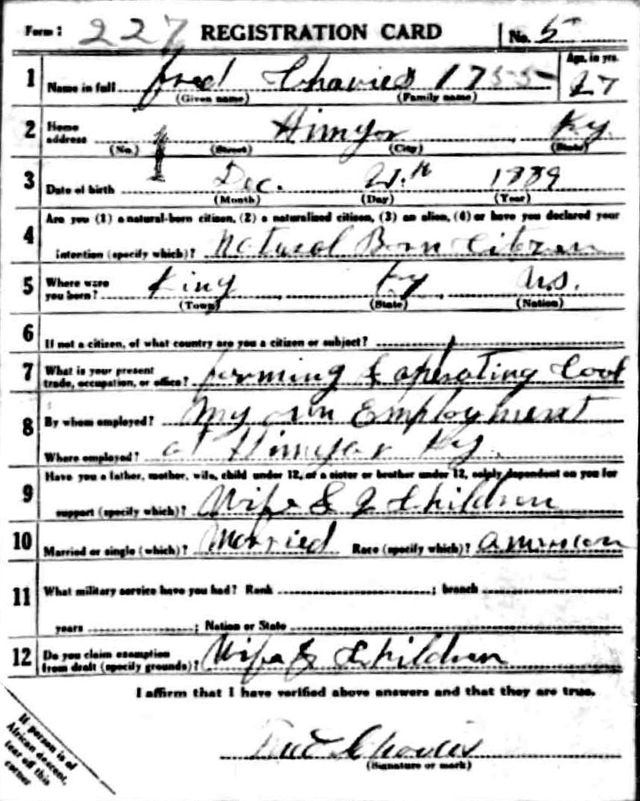 Form 1 227 REGISTRATION CARD No. 5
1 Name in full Fred Chavies 1755 Age, in yrs. 27
(Given name) (Family name)
2 Home address Himyar Ky.
(No.) (Street) (City) (State)
3 Date of birth Dec. 1889
(Month) (Day) (Year)
4 Are you (1) a natural-born citizen, (2) a naturalized citizen, (3) an alien, (4) or have you declared your
intention (specify which)? Natural Born Citizen
5 Where were you born? King Ky U.S.
(Town) (State) (Nation)
6 If not a citizen, of what country are you a citizen or subject?
7 What is your present trade, occupation, or office? farming & operating Coal
8 By whom employed? My own Employment
Where employed? at Himyar Ky.
9 Have you a father, mother, wife, child under 12, or a sister or brother under 12, solely dependent on you for
support (specify which)? Wife & Children
10 Married or single (which)? Married Race (specify which)? American
11 What military service have you had? Rank ; branch ;
years ; Nation or State
12 Do you claim exemption from draft (specify grounds)? Wife & Children
I affirm that I have verified above answers and that they are true.
Fred Chavies
(Signature or mark)
If person is of
African descent,
tear off this
corner